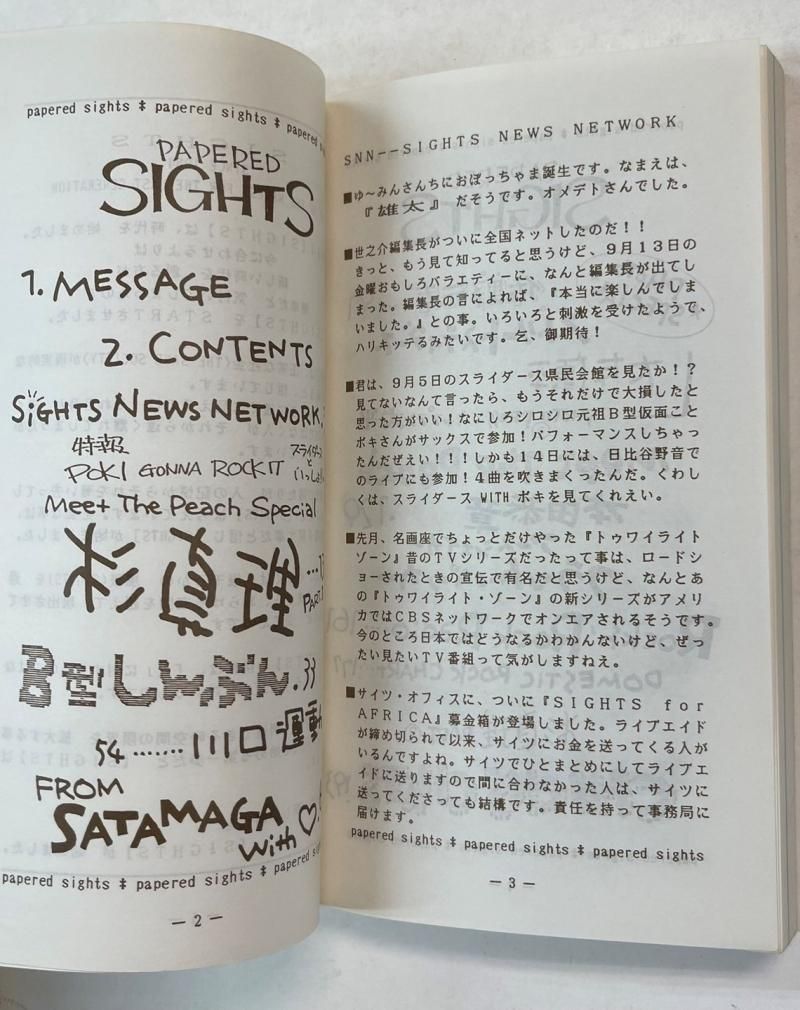 papered sights ‡ papered sights ‡ papered
PAPERED
SIGHTS
1. MESSAGE
2. CONTENTS
SiGHTS NEWS NETWORK
特報
POKI GONNA ROCK IT
スライダース
と
いっしょ
Meet The Peach Special
杉真理
PART
B型しんぶん.33
54………川口運動
FROM
SATAMAGA
with ♡
papered sights ‡ papered sights ‡ papered
— 2 —
SNN——SIGHTS NEWS NETWORK
■ゆ〜みんさんちにおぼっちゃま誕生です。なまえは、
『雄太』 だそうです。オメデトさんでした。
■世之介編集長がついに全国ネットしたのだ!!
きっと、もう見て知ってると思うけど、9月13日の
金曜おもしろバラエティーに、なんと編集長が出てし
まった。編集長の言によれば、『本当に楽しんでしま
いました。』との事。いろいろと刺激を受けたようで、
ハリキッテるみたいです。乞、御期待!
■君は、9月5日のスライダース県民会館を見たか!?
見てないなんて言ったら、もうそれだけで大損したと
思った方がいい!なにしろシロシロ元祖B型仮面こと
ポキさんがサックスで参加!パフォーマンスしちゃっ
たんだぜえい!!!しかも14日には、日比谷野音で
のライブにも参加!4曲を吹きまくったんだ。くわし
くは、スライダース WITH ポキを見てくれえい。
■先月、名画座でちょっとだけやった『トゥワイライト
ゾーン』昔のTVシリーズだったって事は、ロードシ
ョーされたときの宣伝で有名だと思うけど、なんとあ
の『トゥワイライト・ゾーン』の新シリーズがアメリ
カではCBSネットワークでオンエアされるそうです。
今のところ日本ではどうなるかわかんないけど、ぜっ
たい見たいTV番組って気がしますねえ。
■サイツ・オフィスに、ついに『SIGHTS for
AFRICA』募金箱が登場しました。ライブエイド
が締め切られて以来、サイツにお金を送ってくる人が
いるんですよね。サイツでひとまとめにしてライブエ
イドに送りますので間に合わなかった人は、サイツに
送ってくださっても結構です。責任を持って事務局に
届けます。
papered sights ‡ papered sights ‡ papered sights
— 3 —